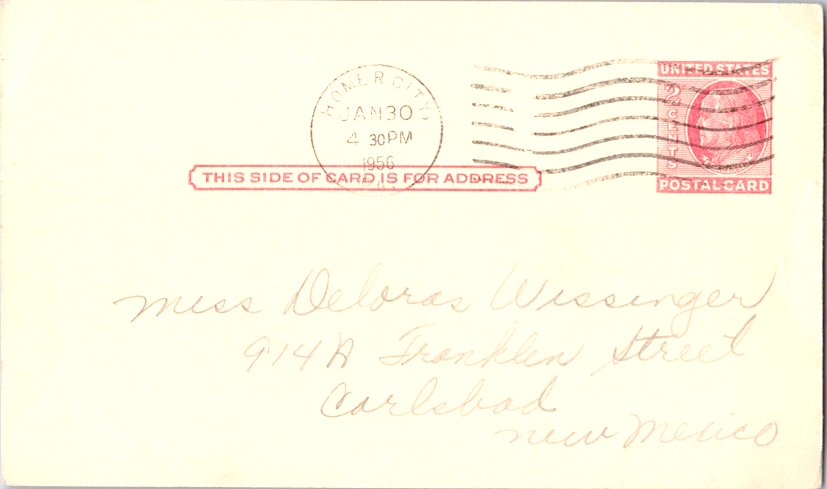 HOMER CITY
JAN 30
4 30 PM
1956
PA.
UNITED STATES
2 CENTS
POSTAL CARD
THIS SIDE OF CARD IS FOR ADDRESS
Miss Deloras Wissinger
914A Franklin Street
Carlsbad
New Mexico